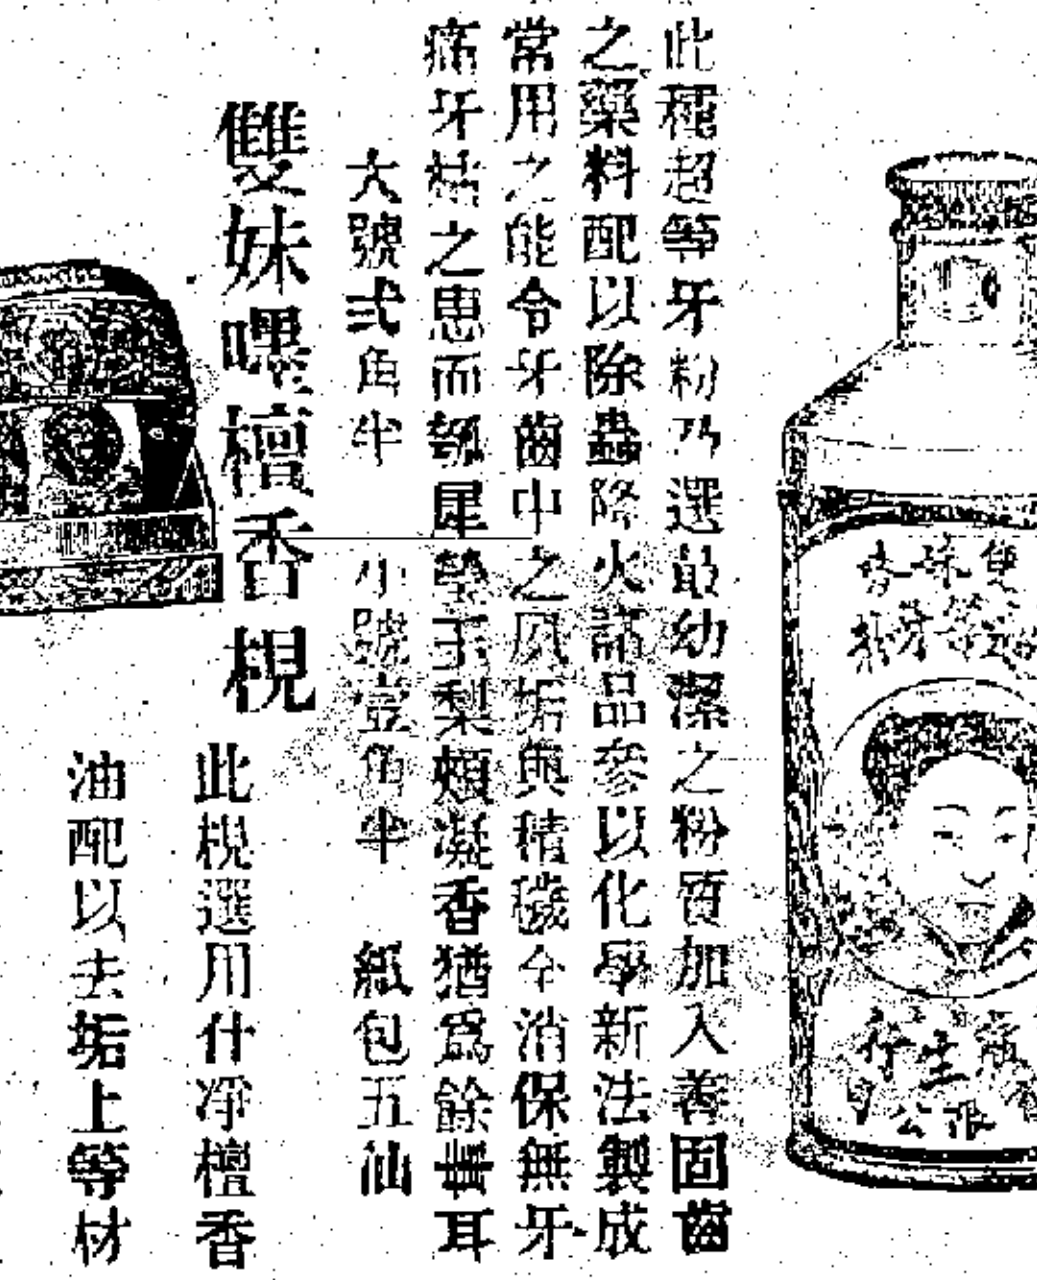 雙妹超等
香牙粉
廣生行
限公司
此種超等牙粉乃選最幼潔之粉質加入善固齒
之藥料配以除蟲降火諸品參以化學新法製成
常用之能令牙齒中之風垢與積穢全消保無牙
痛牙枯之患而瓠犀瑩玉梨頰凝香猶爲餘事耳
大號弍角半 小號壹角半 紙包五仙
雙妹嘿檀香梘
此梘選用什凈檀香
油配以去垢上等材